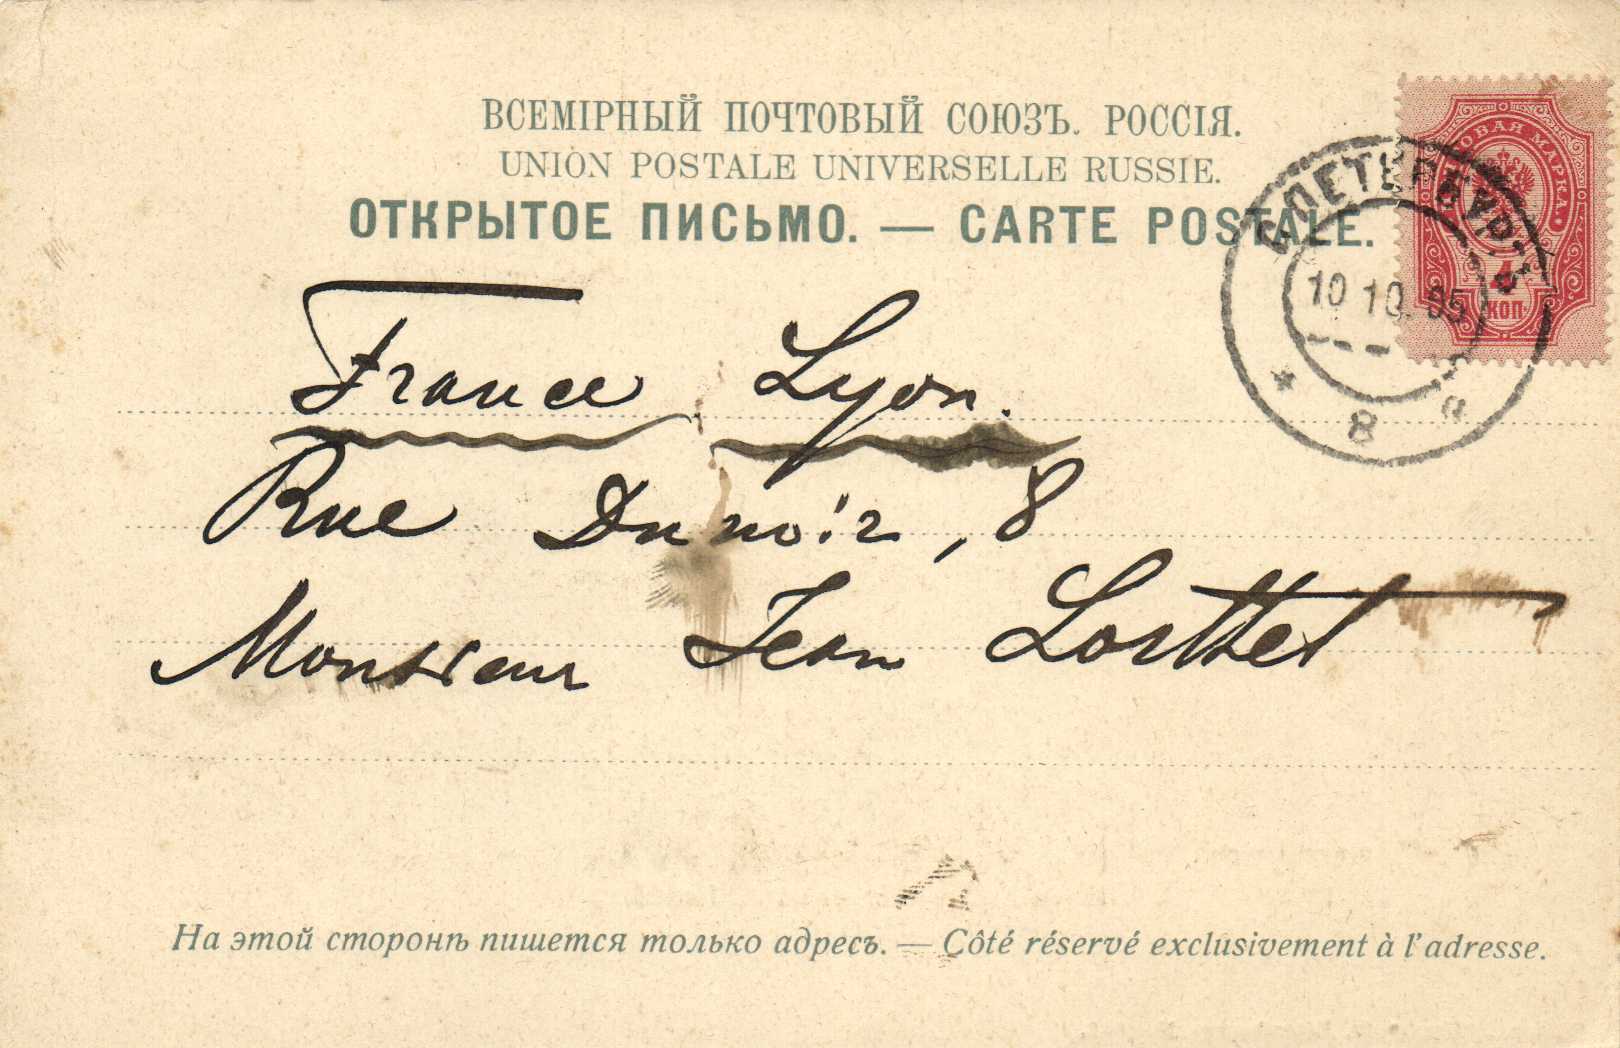 ВСЕМІРНЫЙ ПОЧТОВЫЙ СОЮЗЪ. РОССІЯ.
UNION POSTALE UNIVERSELLE RUSSIE.
ОТКРЫТОЕ ПИСЬМО. — CARTE POSTALE.
ПОЧТОВАЯ МАРКА.
4
КОП.
С ПЕТЕРБУРГЪ
10 10. 05
* 8 a
France Lyon.
Rue Dunoir, 8
Monsieur Jean Lorttet
На этой сторонѣ пишется только адресъ. — Côté réservé exclusivement à l'adresse.